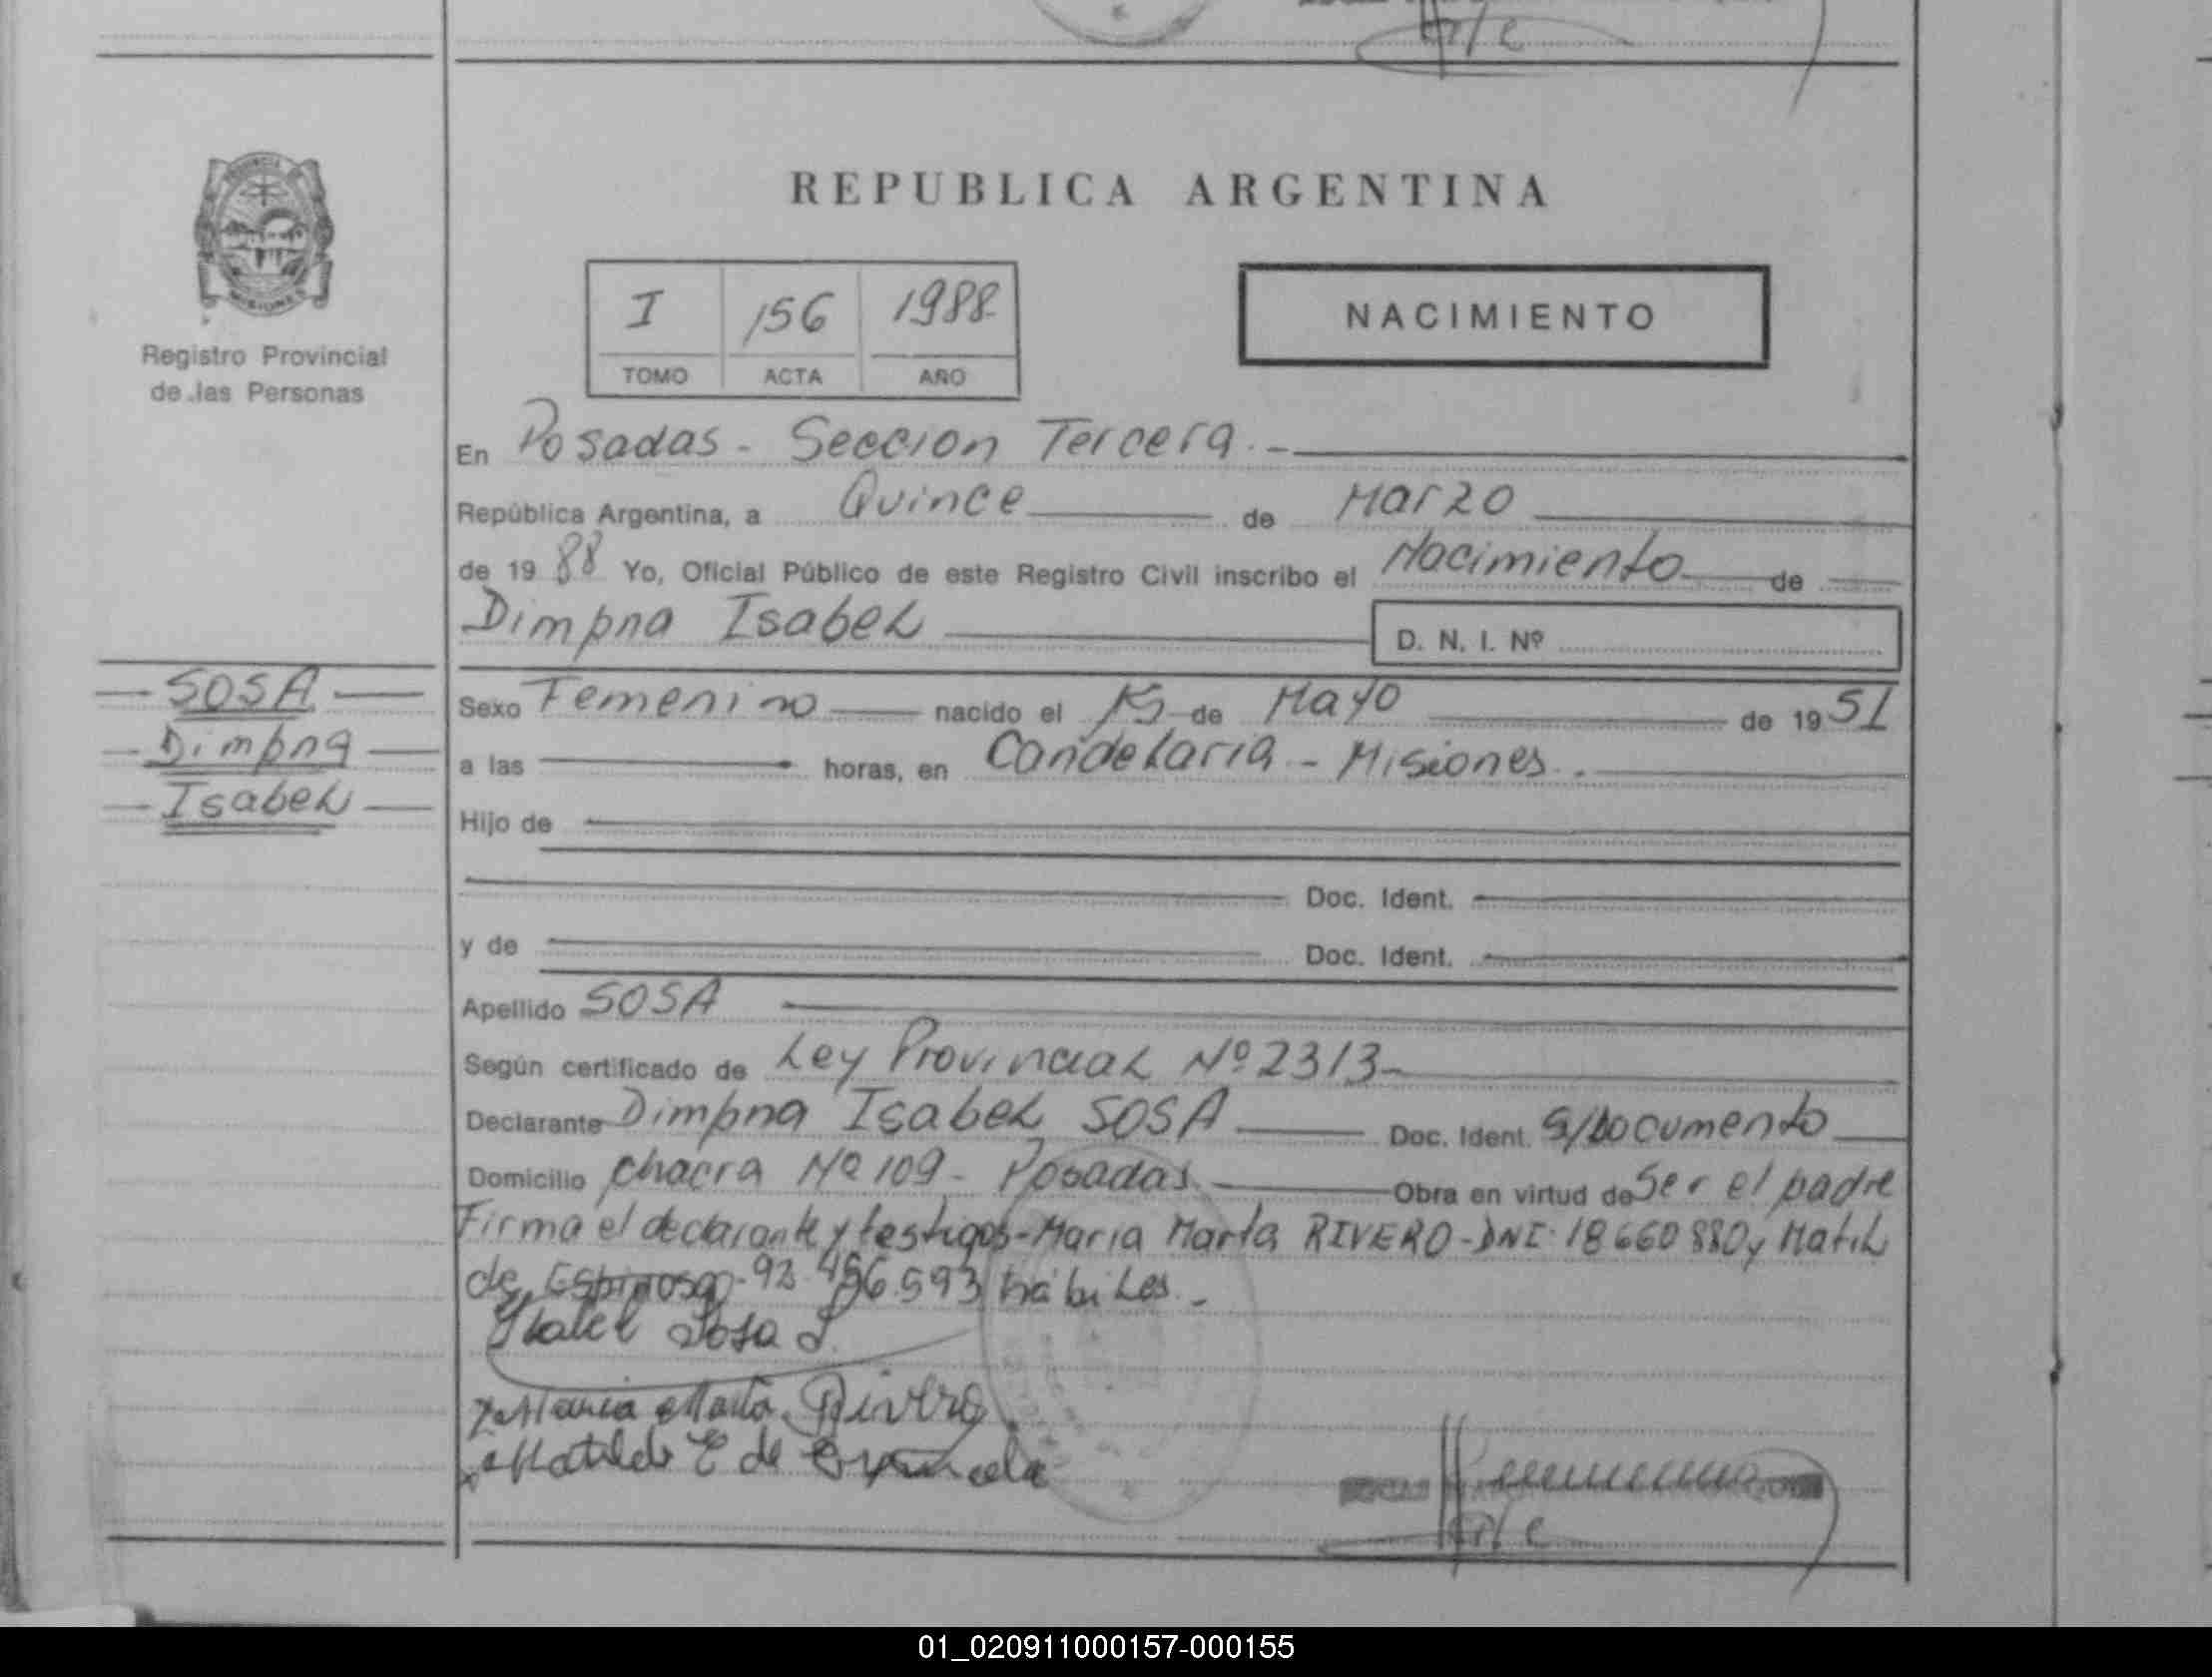 REPUBLICA ARGENTINA
PROVINCIA
MISIONES
Registro Provincial
de las Personas
I 156 1988
TOMO ACTA AÑO
NACIMIENTO
En Posadas - Seccion Tercera.-
República Argentina, a Quince de Marzo
de 19 88 Yo, Oficial Público de este Registro Civil inscribo el Nacimiento de
Dimpna Isabel
D. N. I. Nº
SOSA
Dimpna
Isabel
Sexo Femenino nacido el 15 de Mayo de 19 51
a las horas, en Candelaria - Misiones.
Hijo de
Doc. Ident.
y de Doc. Ident.
Apellido SOSA
Según certificado de Ley Provincial Nº 2313-
Declarante Dimpna Isabel SOSA Doc. Ident. S/Documento
Domicilio Chacra Nº 109 - Posadas Obra en virtud de Ser el padre
Firma el declarante y testigos - Maria Marta RIVERO - DNI. 18660880 y Matil
de Espinosa - 92.456.593 hábiles.-
Isabel Sosa
Maria Marta Rivero
Matilde E de
P/C
01_020911000157-000155